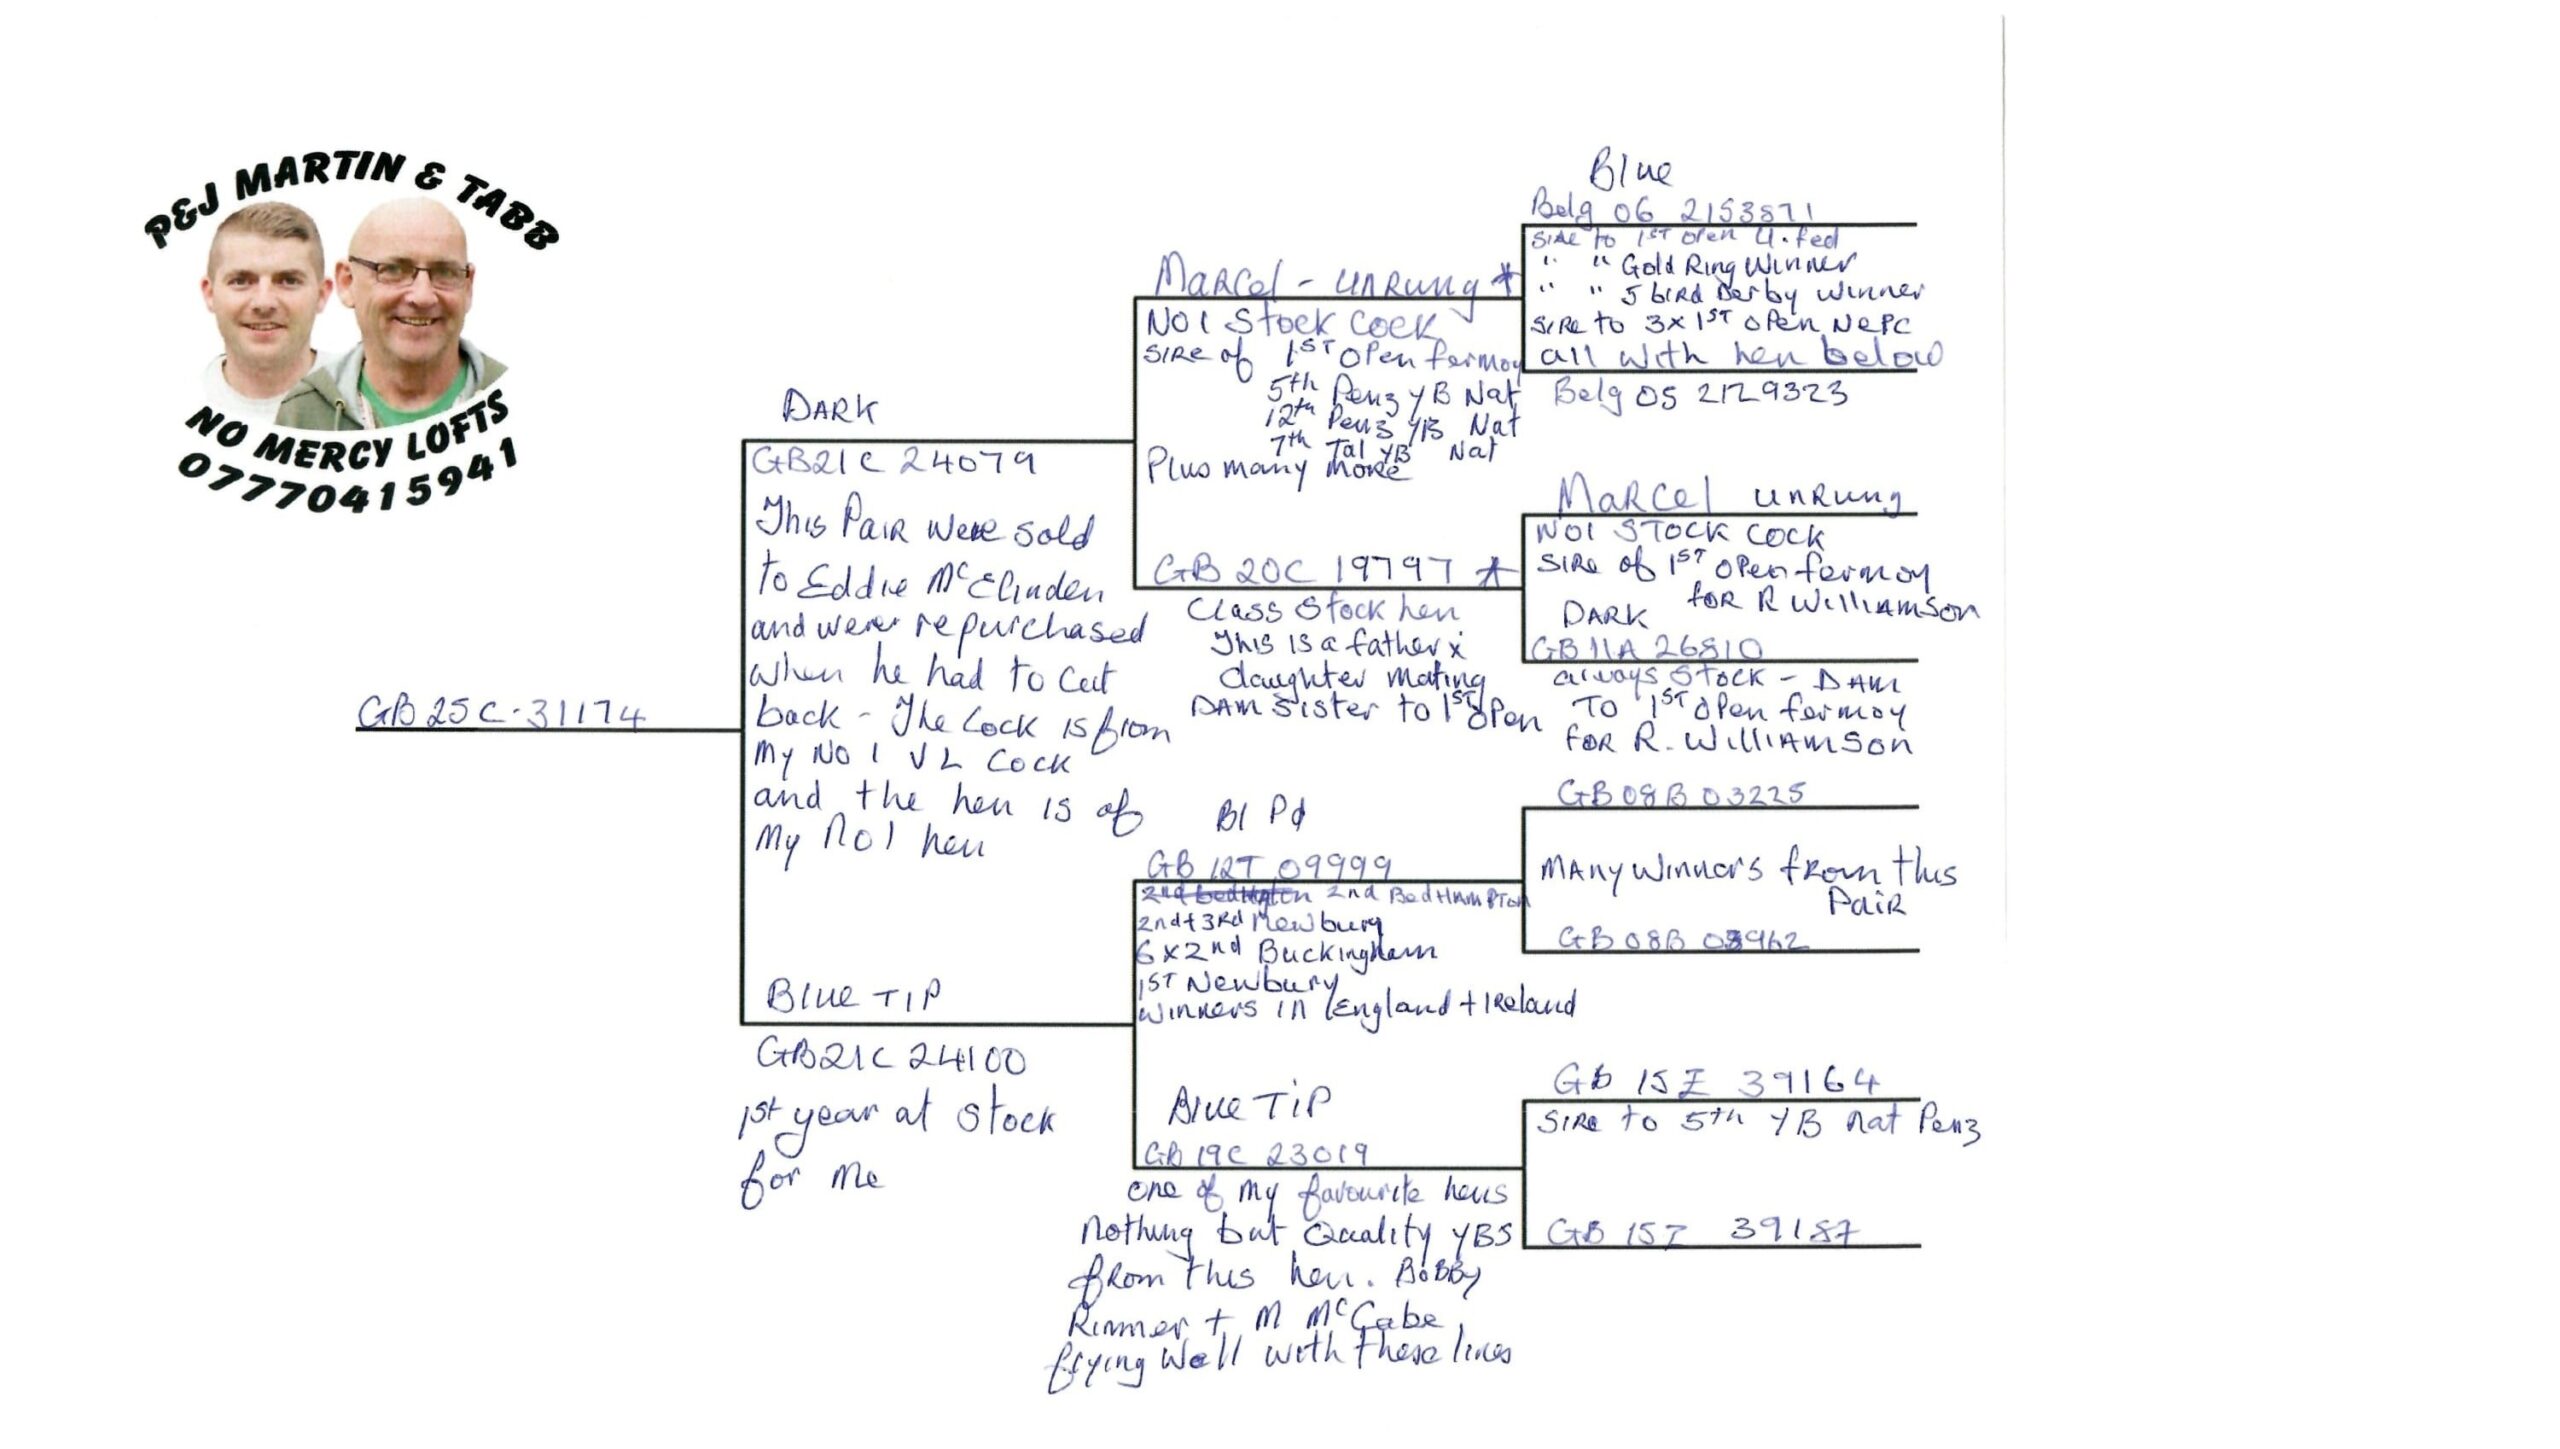 P&J MARTIN & TABB
NO MERCY LOFTS
07770415941
GB 25 C-31174
DARK
GB21C 24079
This Pair were sold
to Eddie McElinden
and were repurchased
when he had to cut
back - The Cock is from
my No 1 VL Cock
and the hen is of
my No1 hen
BLUE TIP
GB21C 24100
1st year at Stock
for me
MARCEL - UNRUNG *
NO 1 Stock COCK
SIRE of 1ST OPEN fermoy
5th Penz YB Nat
12th Penz YB Nat
7th Tal YB Nat
Plus many more
GB 20C 19797 *
Class Stock hen
This is a father x
daughter mating
DAM Sister to 1ST OPen
Bl Pd
GB 12T 09999
2nd BedHAMPTon
2nd + 3Rd Newbury
6 x 2nd Buckingham
1ST Newbury
winners in England + IReland
Blue TIP
GB 19C 23019
one of my favourite hens
Nothing but Quality YBS
from this hen. BoBBy
Rimmer + M McCabe
flying well with these lines
Blue
Belg 06 2153871
SIRE to 1ST open U.fed
" " Gold Ring Winner
" " 5 bird Derby winner
SIRE to 3x1ST OPen NePC
all with hen below
Belg 05 2129323
MARCEL UNRUNG
NO1 STOCK COCK
SIRE of 1ST OPen fermoy
for R WILLIAMSon
DARK
GB 11A 26810
always Stock - DAM
TO 1ST OPen fermoy
foR R. WILLIAMSon
GB 08 B 03225
MANY winners from this
PaiR
GB 08B
GB 15Z 39164
SIRE to 5th YB nat Penz
GB 15Z 39187